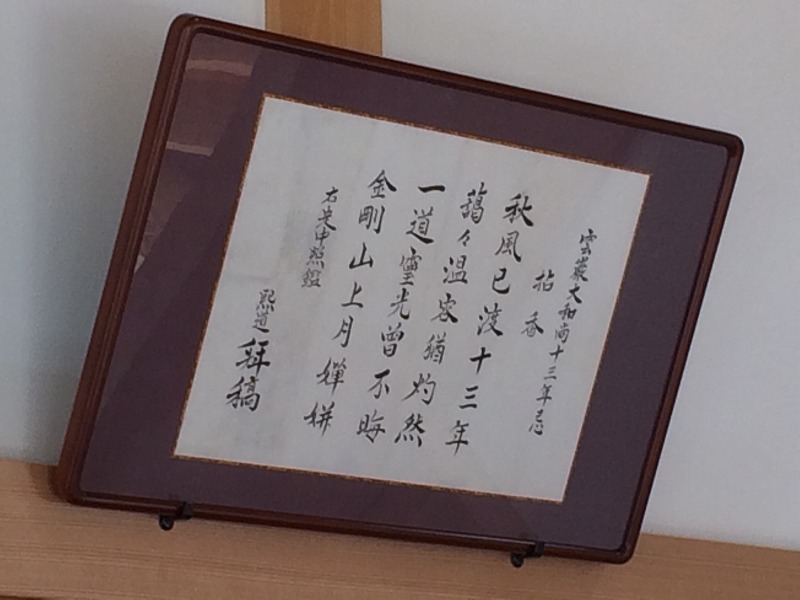 雲巖大和尚十三年忌
拈香
秋風已渡十三年
藹々温容猶灼然
一道靈光曾不晦
金剛山上月嬋妍
右 中照鑑
熙道 拜稿